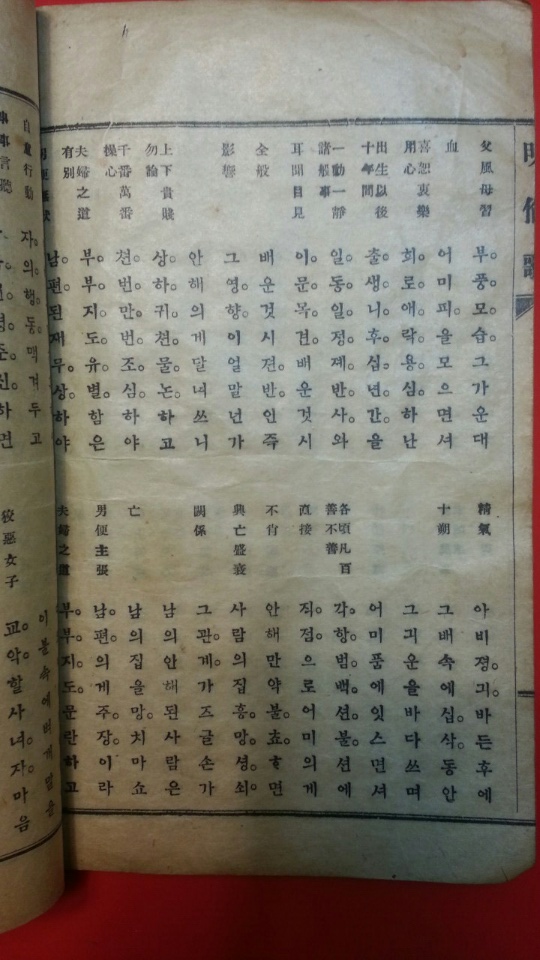 父風母習
부。풍。모。습。그가운대
精氣
아비졍。긔。바든후에
血
어미피。을모으면셔
十朔
그배속에십。삭。동안
喜怒哀樂
用心
희。로。애。락。용。심。하난
그긔운을바다쓰며
出生以後
十年間
출。생。니。후。십。년。간。을
어미품애잇스면셔
一動一靜
諸般事
일。동。일。정。졔。반。사。와
各項凡百
善不善
각。항。범。백。션。불。션에
耳聞目見
이。문。목。견。배운것시
直接
직。졉。으로어미의게
全般
배운것시젼。반。인즉
不肖
안해만약불。쵸。ᄒᆞ면
影響
그영。향。이얼말년가
興亡盛衰
사람의집흥。망。셩。쇠。
안해의게달녀쓰니
關係
그관。계。가즈글손가
上下貴賤
勿論
상。하。귀。쳔。물。논。하고
남의안해된사람은
千番萬番
操心
쳔。번。만。번。조。심。하야
亡
남의집을망。치마쇼
夫婦之道
有別
부。부。지。도。유。별。함은
男便主張
남。편。의게주。장。이라
남。편。된재무。상。하야
夫婦之道
부。부。지。도。문란하고
自處行動
자。의。행。동。맥겨두고
이불속에
狡惡女子
교。악。할사녀。자。마음